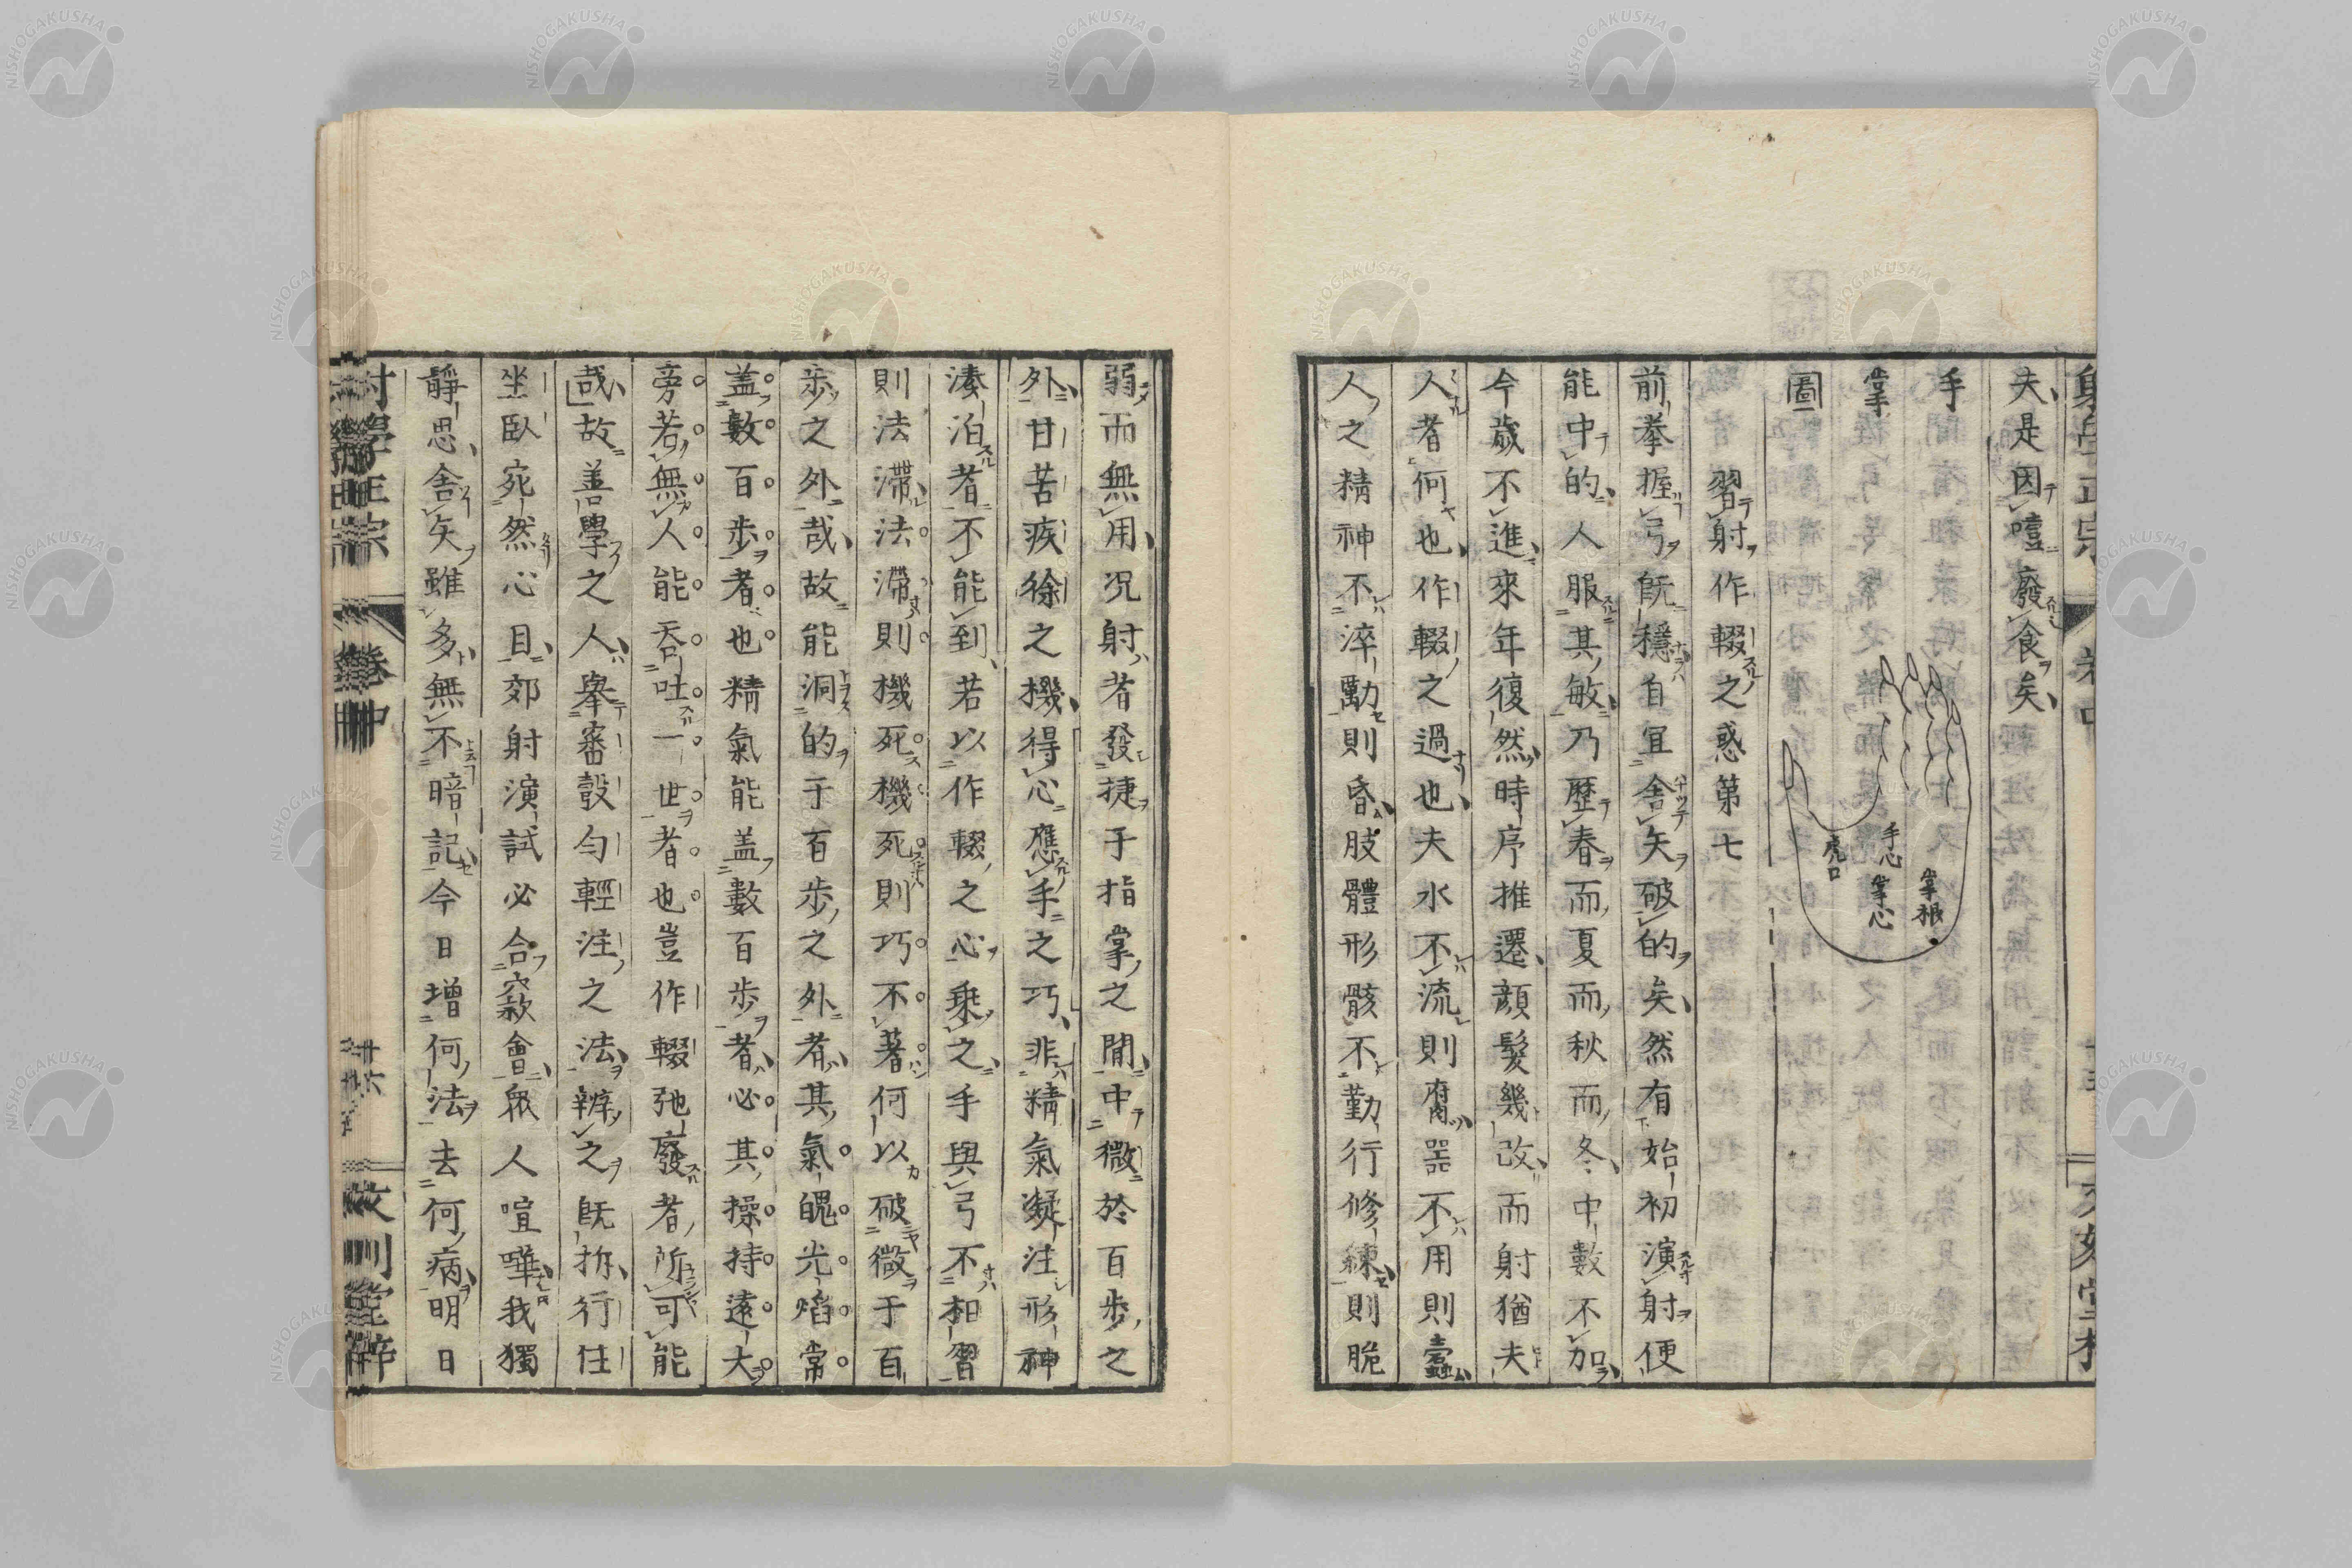 夫是因噎廢食矣
手
掌
圖
虎口
手心
掌心
掌根
習射作輟之惑第七
前拳握弓既穩自宜舍矢破的矣然有始初演射便
能中的人服其敏乃歷春而夏而秋而冬中數不加
今歲不進來年復然時序推遷顔髮幾改而射猶夫
人者何也作輟之過也夫水不流則腐器不用則蠹
人之精神不淬勵則昏肢體形骸不勤行修練則脆
弱而無用況射者發捷于指掌之間中微於百步之
外甘苦疾徐之機得心應手之巧非精氣凝注形神
湊泊者不能到若以作輟之心乘之手與弓不相習
則法滯法滯則機死機死則巧不著何以破微于百
步之外哉故能洞的于百步之外者其氣魄光焰常
盖數百步者也精氣能盖數百步者必其操持遠大
旁若無人能吞吐一世者也豈作輟弛廢者所可能
哉故善學之人擧審彀勻輕注之法辨之既析行住
坐臥宛然心目郊射演試必合窾會衆人喧嘩我獨
靜思舍矢雖多無不暗記今日增何法去何病明日
射學正宗
卷中
NISHOGAKUSHA